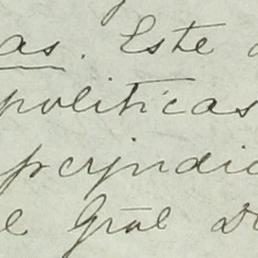 as. Este
politicas
perjudic
el Gral D